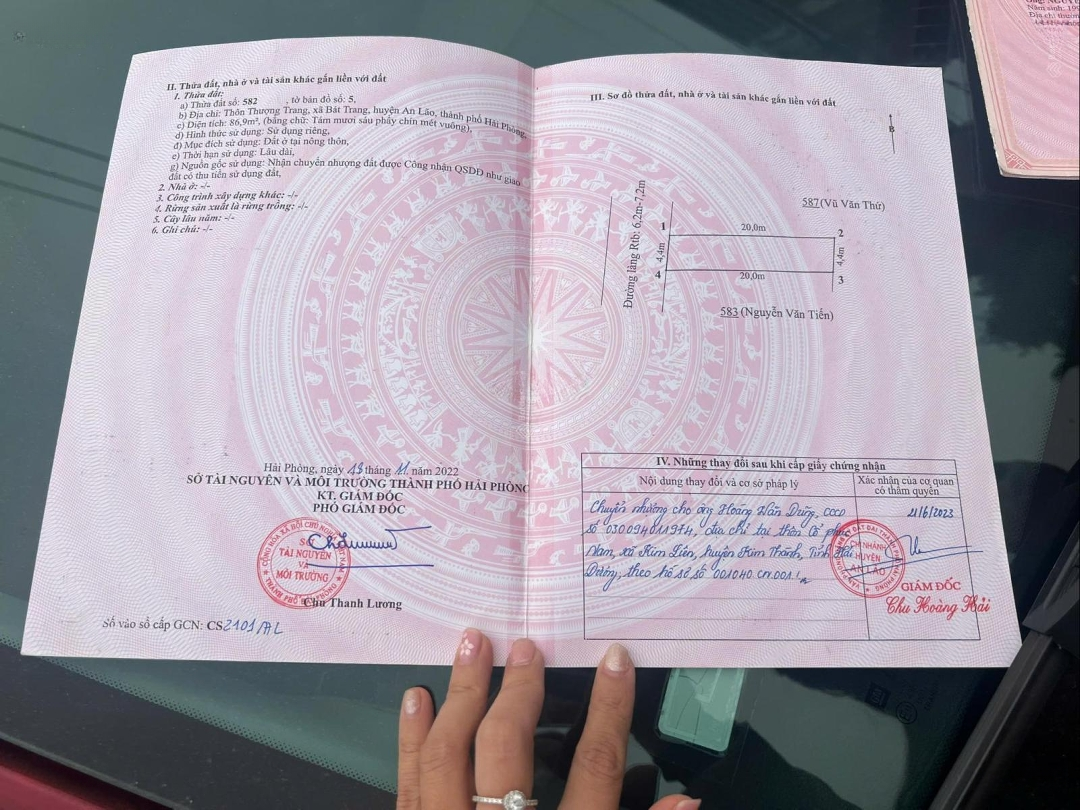 II. Thửa đất, nhà ở và tài sản khác gắn liền với đất
1. Thửa đất:
a) Thửa đất số: 582 , tờ bản đồ số: 5,
b) Địa chỉ: Thôn Thượng Trang, xã Bát Trang, huyện An Lão, thành phố Hải Phòng,
c) Diện tích: 86,9m², (bằng chữ: Tám mươi sáu phẩy chín mét vuông),
d) Hình thức sử dụng: Sử dụng riêng,
đ) Mục đích sử dụng: Đất ở tại nông thôn,
e) Thời hạn sử dụng: Lâu dài,
g) Nguồn gốc sử dụng: Nhận chuyển nhượng đất được Công nhận QSDĐ như giao
đất có thu tiền sử dụng đất,
2. Nhà ở: -/-
3. Công trình xây dựng khác: -/-
4. Rừng sản xuất là rừng trồng: -/-
5. Cây lâu năm: -/-
6. Ghi chú: -/-
Hải Phòng, ngày 13 tháng 11 năm 2022
SỞ TÀI NGUYÊN VÀ MÔI TRƯỜNG THÀNH PHỐ HẢI PHÒNG
KT. GIÁM ĐỐC
PHÓ GIÁM ĐỐC
CỘNG HÒA XÃ HỘI CHỦ NGHĨA VIỆT NAM
SỞ
TÀI NGUYÊN
VÀ
MÔI TRƯỜNG
THÀNH PHỐ HẢI PHÒNG
Chu Thanh Lương
Số vào sổ cấp GCN: CS2101/AL
III. Sơ đồ thửa đất, nhà ở và tài sản khác gắn liền với đất
B
587 (Vũ Văn Thứ)
Đường làng Rtb: 6,2m-7,2m
1
20,0m
2
4,4m
4,4m
4
20,0m
3
583 (Nguyễn Văn Tiến)
IV. Những thay đổi sau khi cấp giấy chứng nhận
Nội dung thay đổi và cơ sở pháp lý
Xác nhận của cơ quan
có thẩm quyền
Chuyển nhượng cho ông Hoàng Văn Dũng, CCCD
số 030094011974, địa chỉ tại thôn Cổ
Nam, xã Kim Liên, huyện Kim Thành, Tỉnh Hải
Dương, theo hồ sơ số 001040.CN.001.
21/6/2023
CHI NHÁNH
HUYỆN
AN LÃO
GIÁM ĐỐC
Chu Hoàng Hải
Năm sinh: 199
Địa chỉ thườn